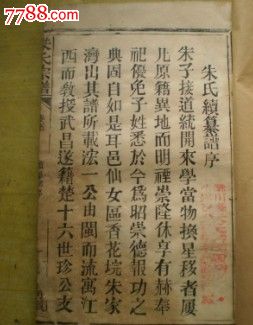 7788.com
朱氏宗譜
朱氏續纂譜序
朱子接道統開來學當物換星移者屢
凡原籍異地而明禋崇隆休享有赫奉
祀優免子姓悉於今爲昭崇德報功之
典固自如是耳邑仙女區香花垸朱家
灣出其譜所載浤一公由閩而流寓江
西而敎授武昌遂籍楚十六世珍公支